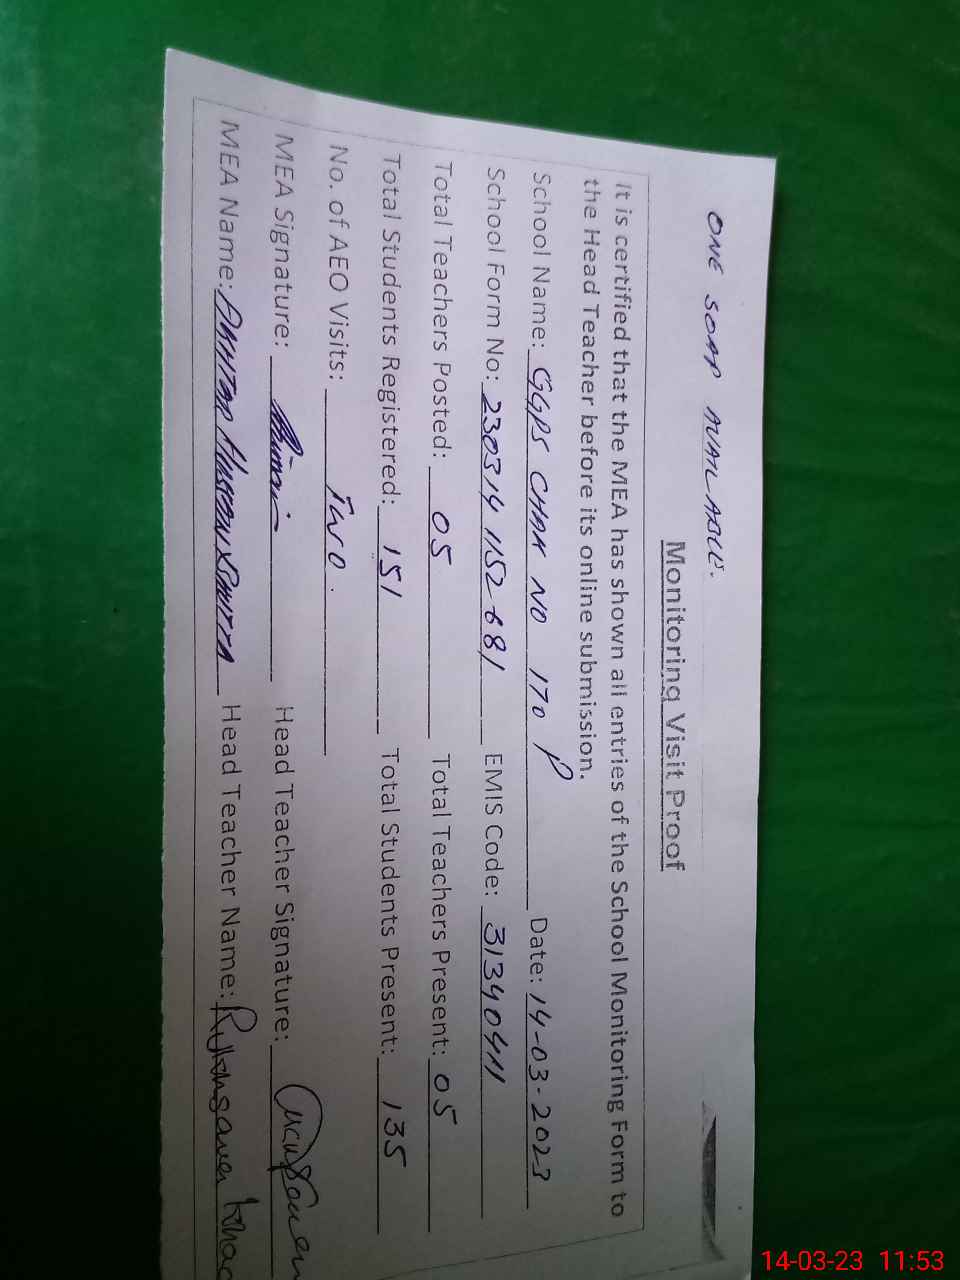 ONE SOAP AVAILABLE.
Monitoring Visit Proof
It is certified that the MEA has shown all entries of the School Monitoring Form to
the Head Teacher before its online submission.
School Name: GGPS CHAK NO 170 P Date: 14-03-2023
School Form No: 230314 1152681 EMIS Code: 31340411
Total Teachers Posted: 05 Total Teachers Present: 05
Total Students Registered: 151 Total Students Present: 135
No. of AEO Visits: TWO.
MEA Signature: Head Teacher Signature:
MEA Name: Head Teacher Name:
14-03-23 11:53